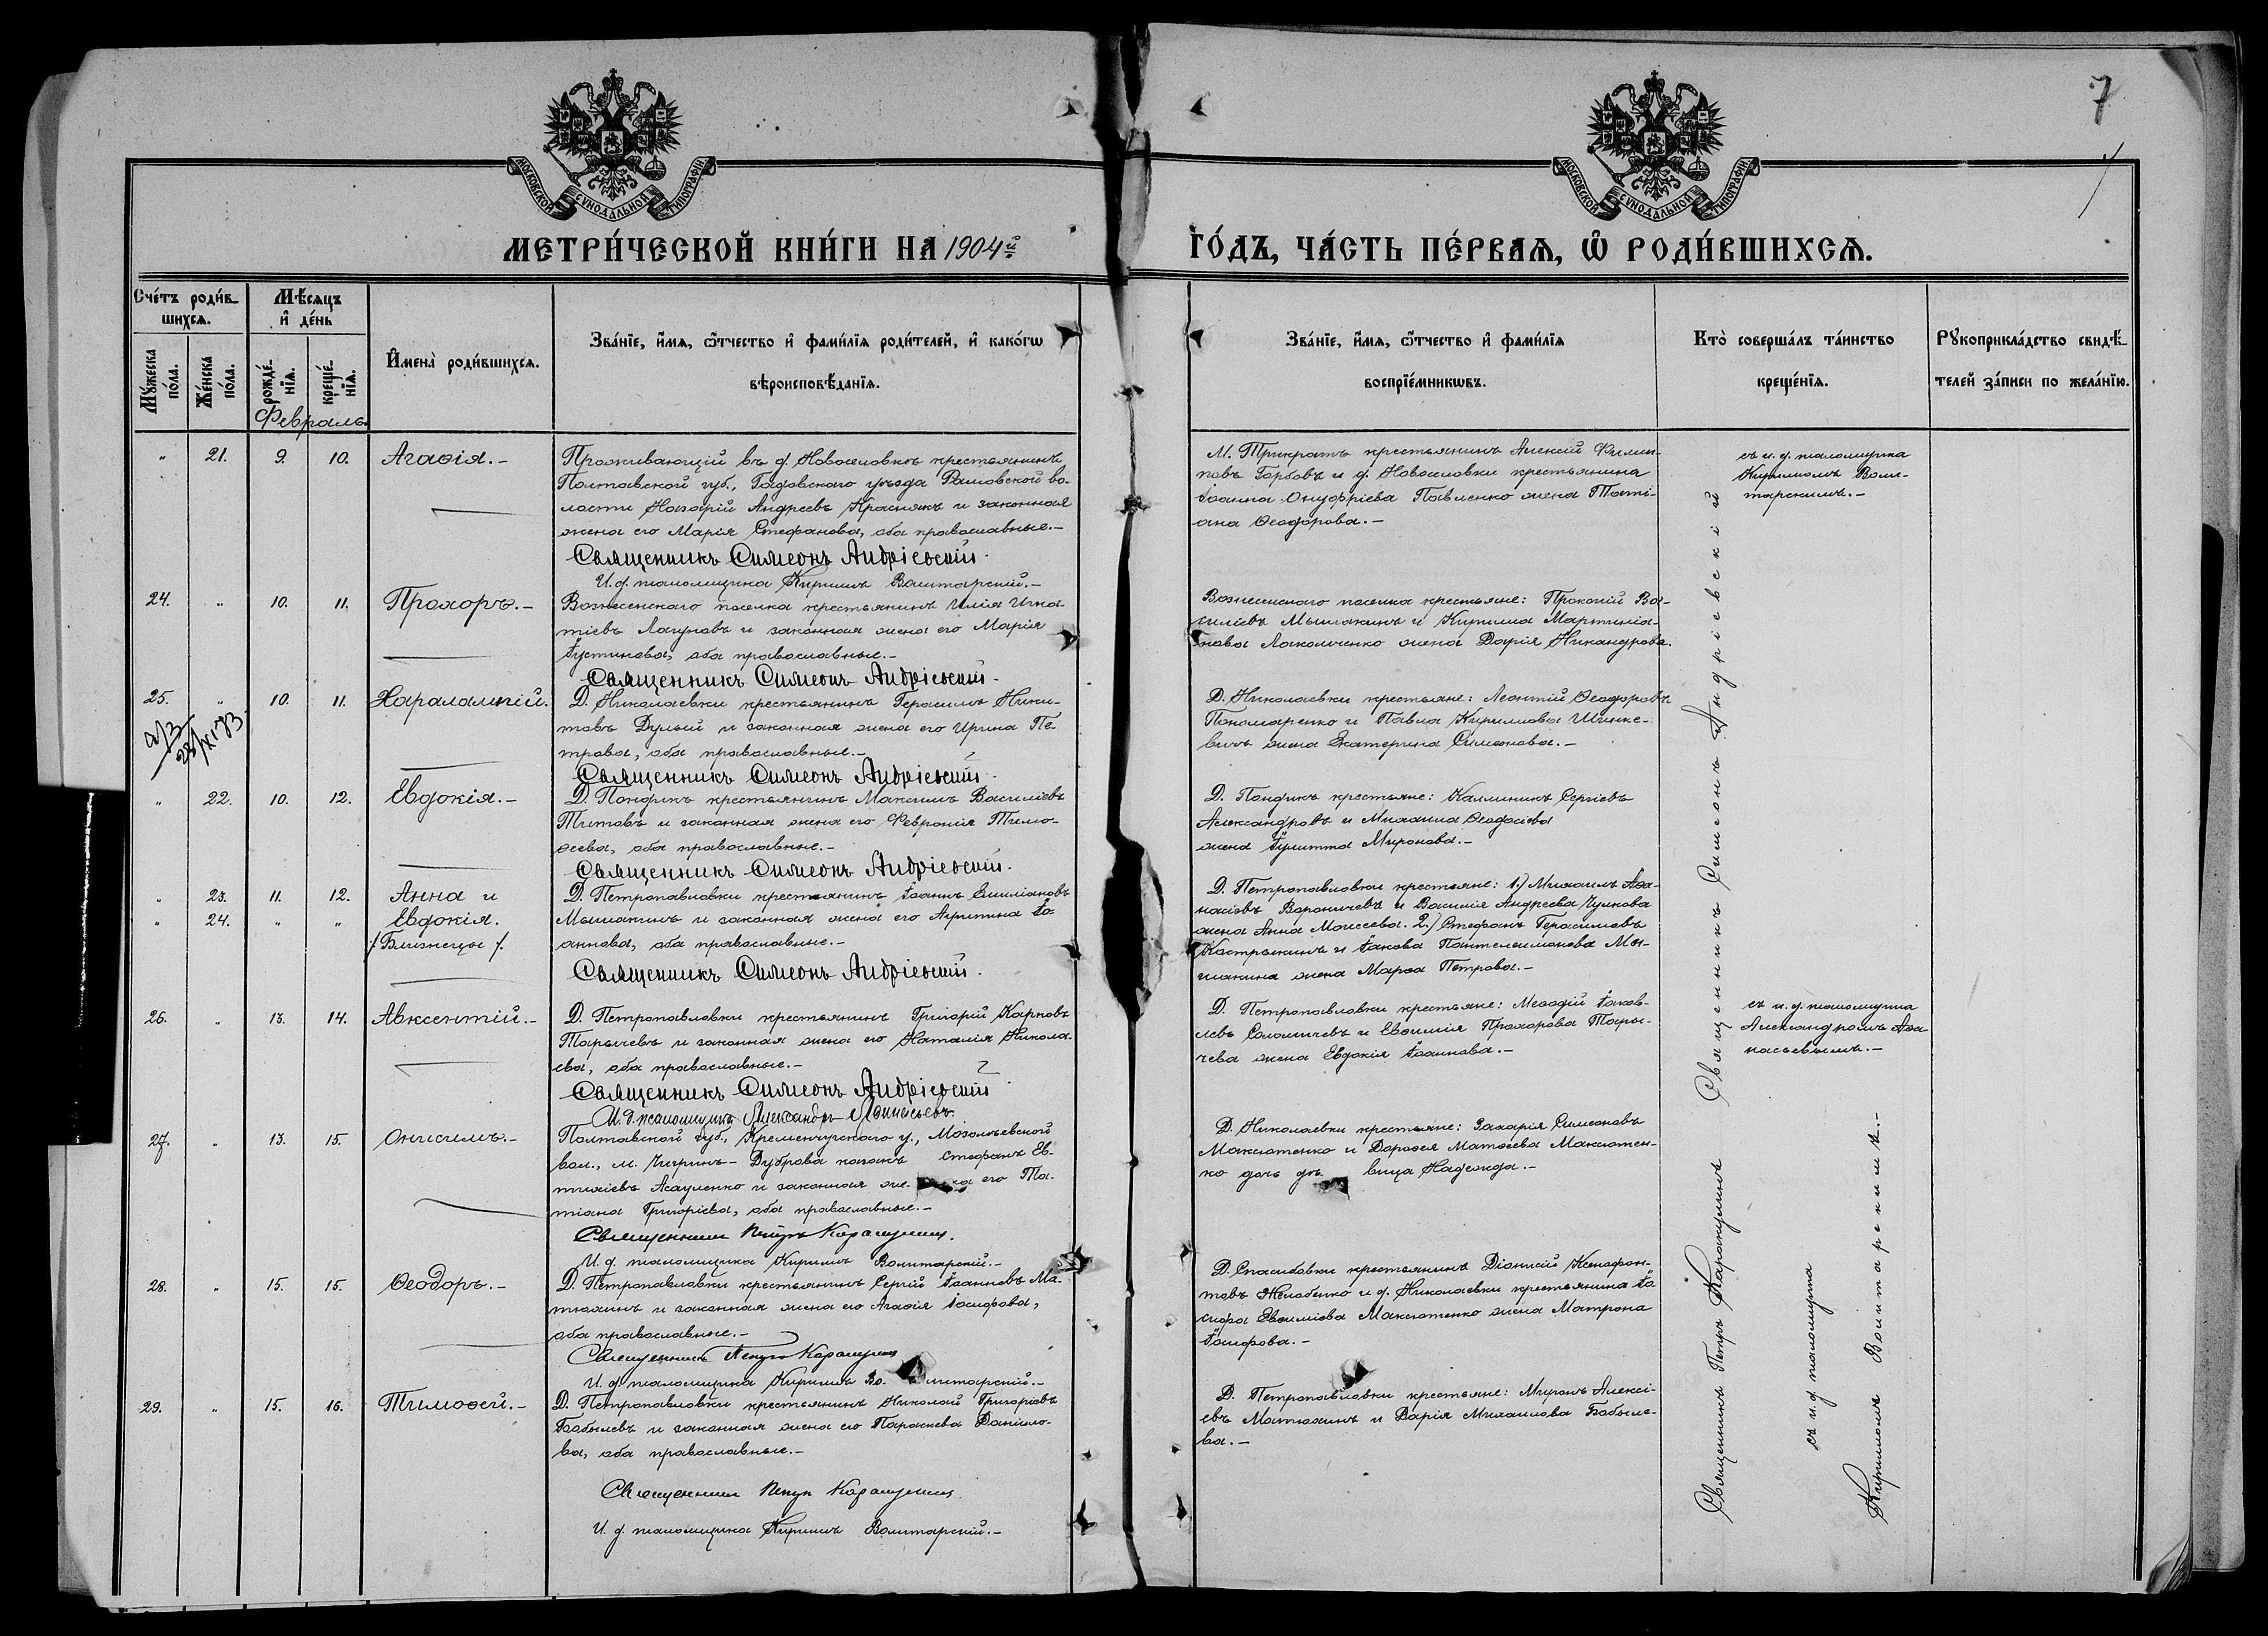 7
МОСКОВСКОЙ СѴНОДАЛЬНОЙ ТИПОГРАФІИ
МОСКОВСКОЙ СѴНОДАЛЬНОЙ ТИПОГРАФІИ
МЕТРИ́ЧЕСКОЙ КНИ́ГИ НА 1904й
ГО́ДЪ, ЧА́СТЬ ПЕ́РВАѦ, Ѡ҆ РОДИ́ВШИХСѦ.
Сче́тъ роди́в-
шихсѧ.
Мѣ́сѧцъ
и҆ де́нь
Мꙋ́жеска по́ла.
Же́нска по́ла.
рожде́-нїѧ.
креще́-нїѧ.
И҆мена̀ роди́вшихсѧ.
Зва́нїе, и҆́мѧ, ѻ҆́тчество и҆ фами́лїѧ роди́телей, и҆ како́гѡ
вѣроисповѣ́данїѧ.
Зва́нїе, и҆́мѧ, ѻ҆́тчество и҆ фами́лїѧ
воспрїе́мникѡвъ.
Кто̀ соверша́лъ та́инство
креще́нїѧ.
Рꙋкоприкла́дство свидѣ́-
телей за́писи по жела́нїю.
Февраль
" 21. 9. 10. Агаѳія.-
Проживающій въ д. Новоселовкѣ крестьянинъ
Полтавской губ., Гадовскаго уѣзда Рашовской во-
лости Назарій Андреевъ Краснякъ и законная
жена его Марія Стефанова, оба православные.-
Священникъ Симеонъ Андріевскій.
И. д. псаломщика Кириллъ Волитарскій.-
М. Трикратъ крестьянинъ Алексій Филип-
повъ Горбовъ и д. Новоселовки крестьянина
Іоанна Онуфріева Павленко жена Тати-
ана Ѳеодорова.-
съ и. д. псаломщика
Кирилломъ Воли-
тарскимъ.-
24. " 10. 11. Прохоръ.-
Вознесенскаго поселка крестьянинъ Илія Игна-
тіевъ Лагуновъ и законная жена его Марія
Іустинова, оба православные.-
Священникъ Симеонъ Андріевскій.
Вознесенскаго поселка крестьяне: Прокопій Ва-
силіевъ Мышакинъ и Кирилла Мартиніа-
нова Лакомченко жена Дарія Никандрова.
25. " 10. 11. Харалампій.
Д. Николаевки крестьянинъ Герасимъ Ники-
товъ Дулый и законная жена его Ирина Пе-
трова, оба православные.-
Священникъ Симеонъ Андріевскій.
Д. Николаевки крестьяне: Леонтій Ѳеодоровъ
Пономаренко и Павла Кириллова Шинке-
вичъ жена Екатерина Симеонова.-
" 22. 10. 12. Евдокія.-
Д. Пондикъ крестьянинъ Максимъ Василіевъ
Титовъ и законная жена его Февронія Тимо-
ѳеева, оба православные.-
Священникъ Симеонъ Андріевскій.
Д. Пондикъ крестьяне: Каллиникъ Сергіевъ
Александровъ и Михаила Ѳеодосіева
жена Іулитта Миронова.-
" 23. 11. 12. Анна и
" 24. " " Евдокія.
/Близнецы/.
Д. Петропавловки крестьянинъ Іоаннъ Емиліановъ
Мышакинъ и законная жена его Агрипина Іо-
аннова, оба православные.-
Священникъ Симеонъ Андріевскій.
Д. Петропавловки крестьяне: 1.) Михаилъ Аѳа-
насіевъ Вороничевъ и Василія Андреева Чулкова
жена Анна Моисеева. 2.) Стефанъ Герасимовъ
Кострыкинъ и Іакова Пантелеимонова Мы-
шакина жена Марѳа Петрова.-
26. " 13. 14. Авксентій.-
Д. Петропавловки крестьянинъ Григорій Карповъ
Тарычевъ и законная жена его Наталія Никола-
ева, оба православные.-
Священникъ Симеонъ Андріевскій
И. д. псаломщика Александръ Аѳанасьевъ.
Д. Петропавловки крестьяне: Меѳодій Іаков-
левъ Саломичевъ и Евѳимія Прохорова Тары-
чева жена Евдокія Іоаннова.-
съ и. д. псаломщика
Александромъ Аѳа-
насьевымъ.-
Священникъ Симеонъ Андріевскій
27. " 13. 15. Онисимъ.-
Полтавской губ., Кременчугскаго у., Мозолѣевской
вол., м. Чигринъ-Дуброва казакъ Стефанъ Ев-
тихіевъ Асауленко и законная же на его Та-
тіана Григоріева, оба православные.-
Священникъ Петръ Каракулинъ.
И. д. псаломщика Кириллъ Волитарскій.-
Д. Николаевки крестьяне: Захарія Симеоновъ
Максютенко и Дороѳея Матѳеева Максютен-
ко дочь дѣ вица Надежда.-
28. " 15. 15. Ѳеодоръ.-
Д. Петропавловки крестьянинъ Сергій Іоанновъ Ма-
тюхинъ и законная жена его Агаѳія Іосифова,
оба православные.-
Священникъ Петръ Каракулинъ
И. д. псаломщика Кириллъ Во- литарскій.-
Д. Спасибовки крестьянинъ Діонисій Ксенофон-
товъ Желобенко и д. Николаевки крестьянина Іо-
сифа Евѳиміева Максютенко жена Матрона
Іосифова.-
29. " 15. 16. Тимоѳей.-
Д. Петропавловки крестьянинъ Николай Григоріевъ
Бобылевъ и законная жена его Параскева Даніило-
ва, оба православные.-
Священникъ Петръ Каракулинъ.
И. д. псаломщика Кириллъ Волитарскій.-
Д. Петропавловки крестьяне: Миронъ Алексі-
евъ Матюхинъ и Варія Михаилова Бобыле-
ва.-
Священникъ Петръ Каракулинъ
съ и. д. псаломщика
Кирилломъ Волитарскимъ.-